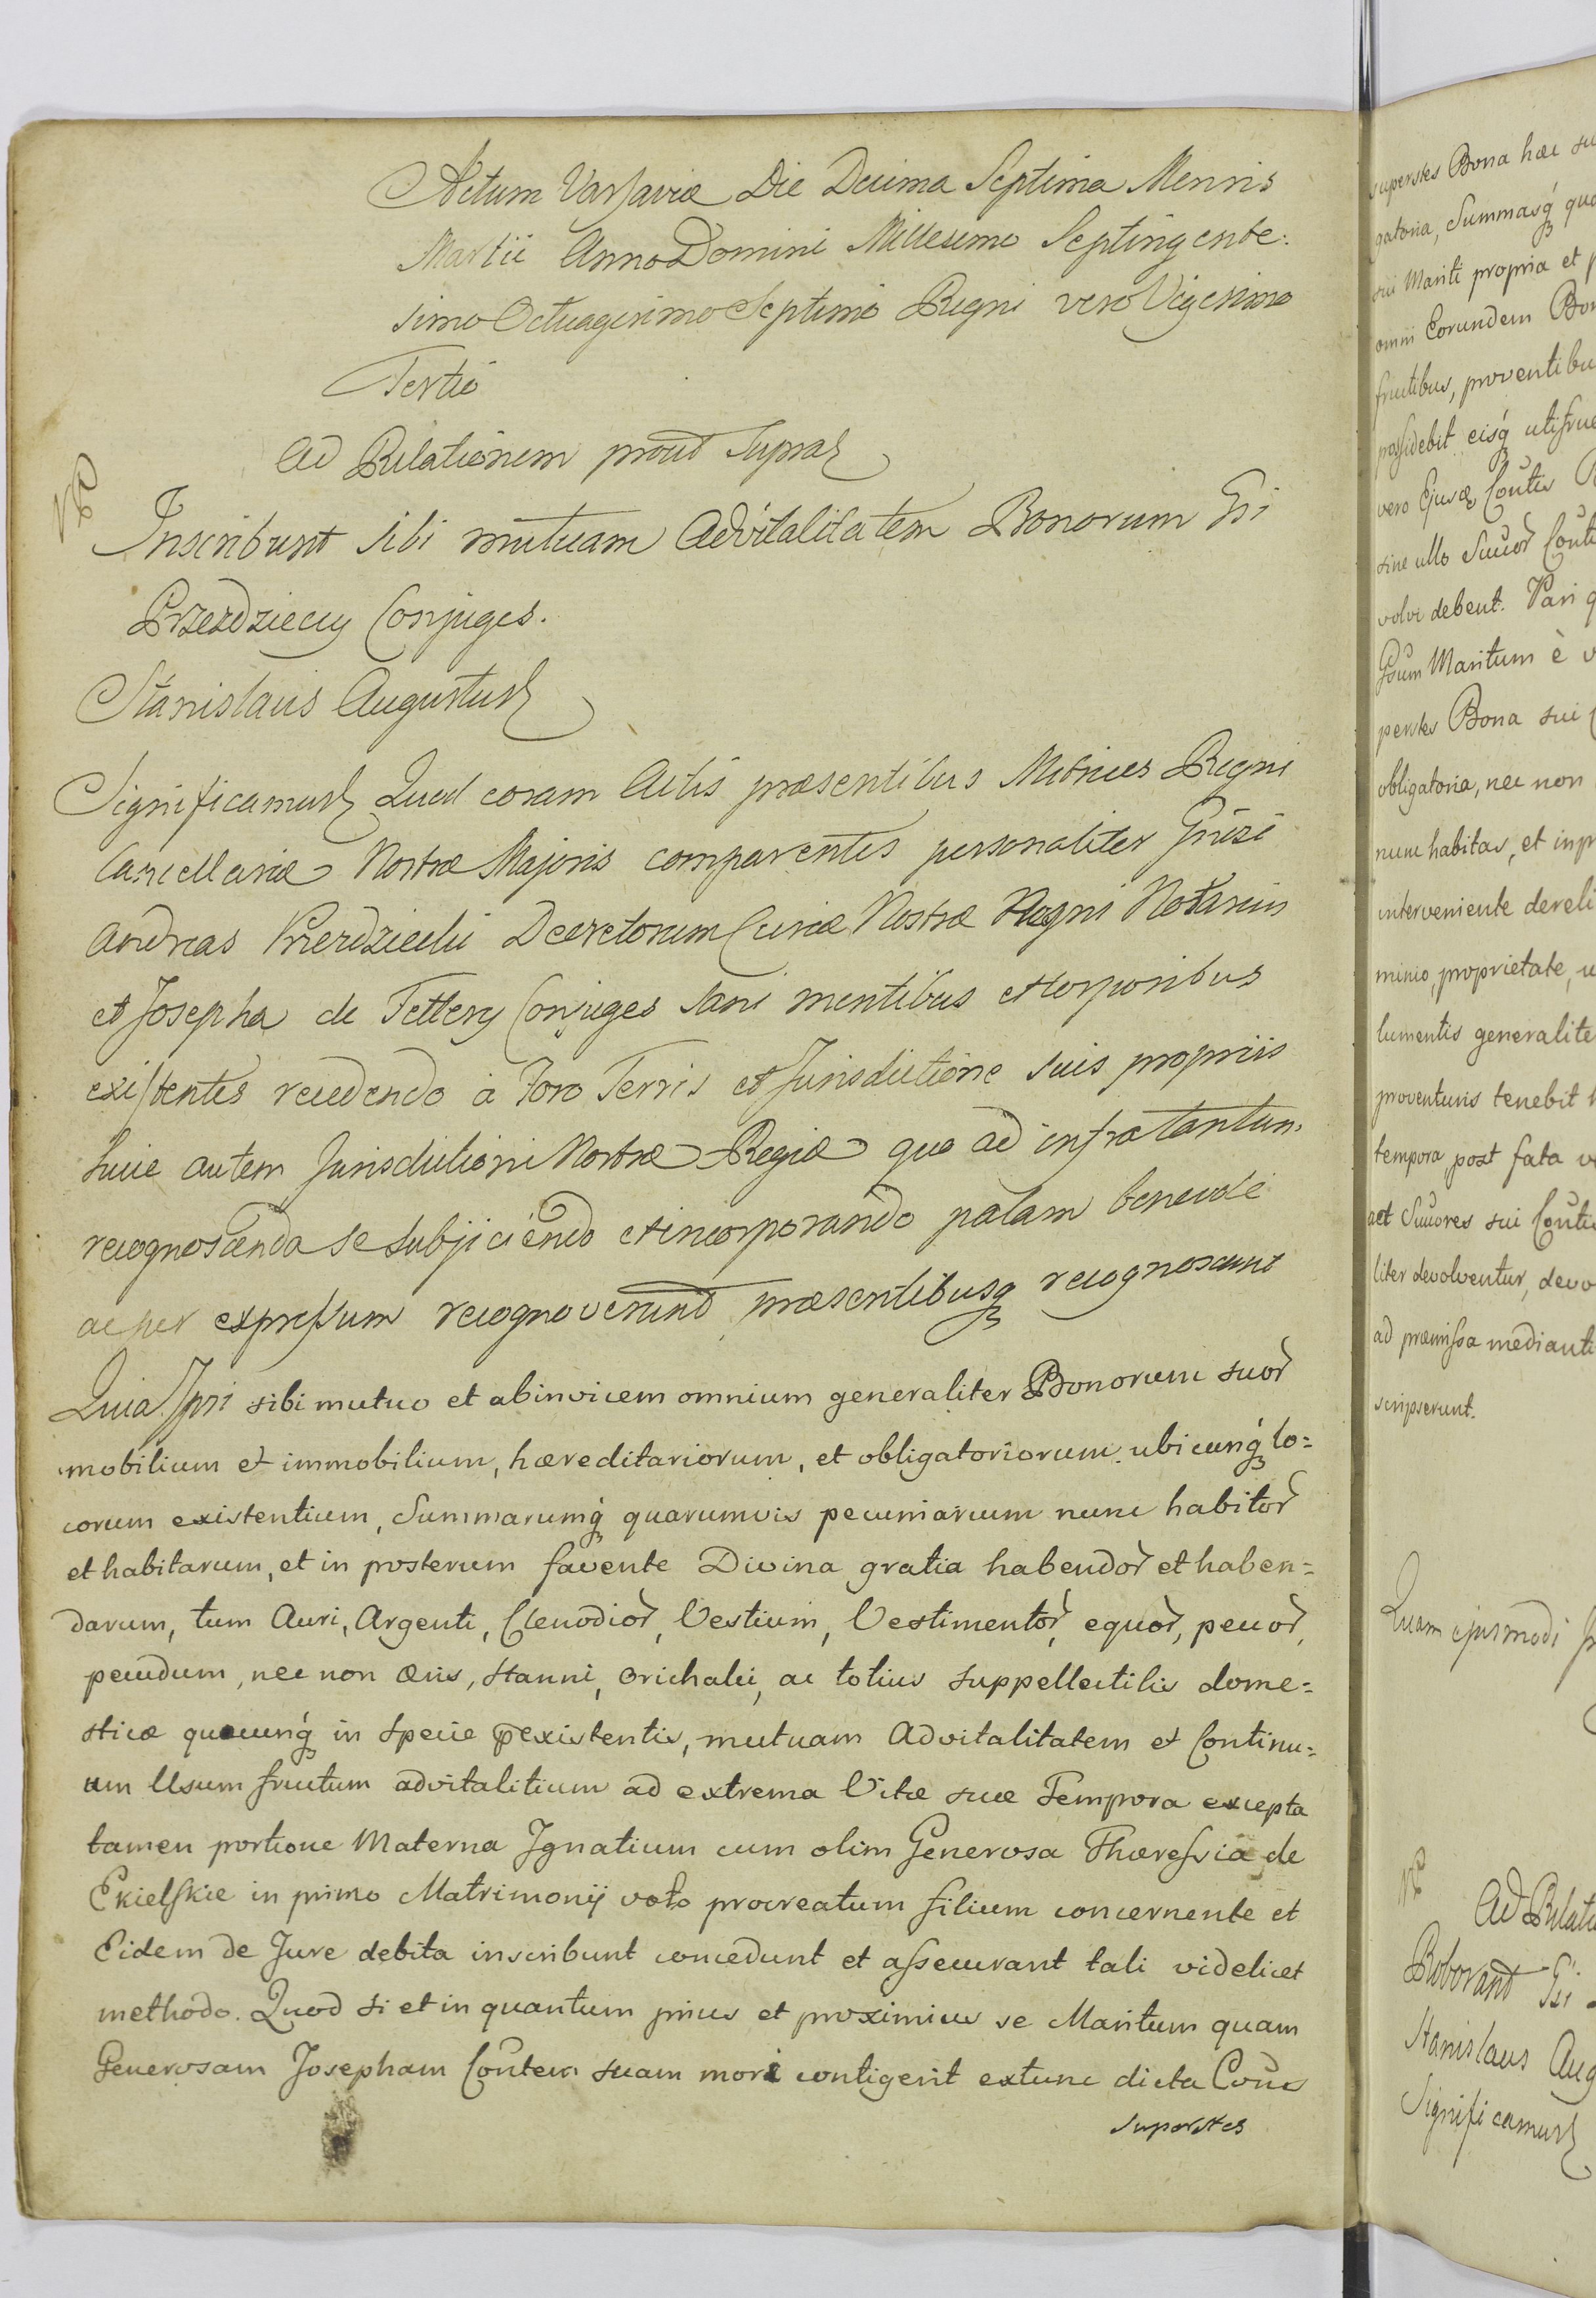 Actum Varsaviæ Die Decima Septima Mensis
Martii Anno Domini Millesimo Septingente:
simo Octuagesimo Septimo Regni vero Vigesimo
Tertio
Ad Relationem prout Supra
Inscribunt sibi mutuam Advitalitatem Bonorum Gsi
Przezdzieccy Conjuges.
Stanislaus Augustus
Significamus Quod coram Actis præsentibus Metrices Regni
Cancellariæ Nostræ Majoris comparentes personaliter Gnisi
Andreas Przezdziecki Decretorum Curiæ Nostræ Regni Notarius
et Josepha de Fettery Conjuges sani mentibus et corporibus
existentes recedendo à Foro Terris et Jurisdictione suis propriis
huic autem Jurisdictioni Nostræ Regiæ quo ad infra tantum
recognoscenda se subjiciendo et incorporando palam benevole
ac per expressum recognoverunt præsentibusq recognoscunt
Quia Ipsi sibi mutuo et abinvicem omnium generaliter Bonorum suor
mobilium et immobilium, hæreditariorum, et obligatoriorum ubicunq lo=
corum existentium, Summarumq quarumvis pecuniarium nunc habitor
et habitarum, et in posterum favente Divina gratia habendor et haben=
darum, tum Auri, Argenti, Clenodior, Vestium, Vestimentor, equor, pecor,
pecudum, nec non æris, stanni, orichalci, ac totius suppellectilis dome=
sticæ quacunq in specie existentis, mutuam Advitalitatem et Continu=
um Usum fructum advitalitium ad extrema Vitæ suæ Tempora excepta
tamen portione Materna Ignatium cum olim Generosa Thæressia de
Ekielskie in primo Matrimonij voto procreatum filium concernente et
Eidem de Jure debita inscribunt concedunt et assecurant tali videlicet
methodo. Quod si et in quantum prius et proximius se Maritum quam
Generosam Josepham Contem suam mori contigerit extunc dicta Conis
superstes
superstes Bona hæc su
gatoria, Summasq qua
sui Mariti propria et p
omni Eorundem Bon
fructibus, proventibu
possidebit eisq utifrue
vero Ejusd Contis
sine ullo Succor Conti
volvi debent. Pari q
Gsum Maritum è v
perstes Bona sui
obligatoria, nec non
nunc habitas, et in p
interveniente dereli
minio, proprietate, u
lumentis generalite
proventuris tenebit h
tempora, post fata v
act Succores sui Contis
liter devolventur, devo
ad præmissa medianti
scripserunt.
Quam ejusmodi
Ad Relati
Roborant Gsi
Stanislaus Aug
Significamus